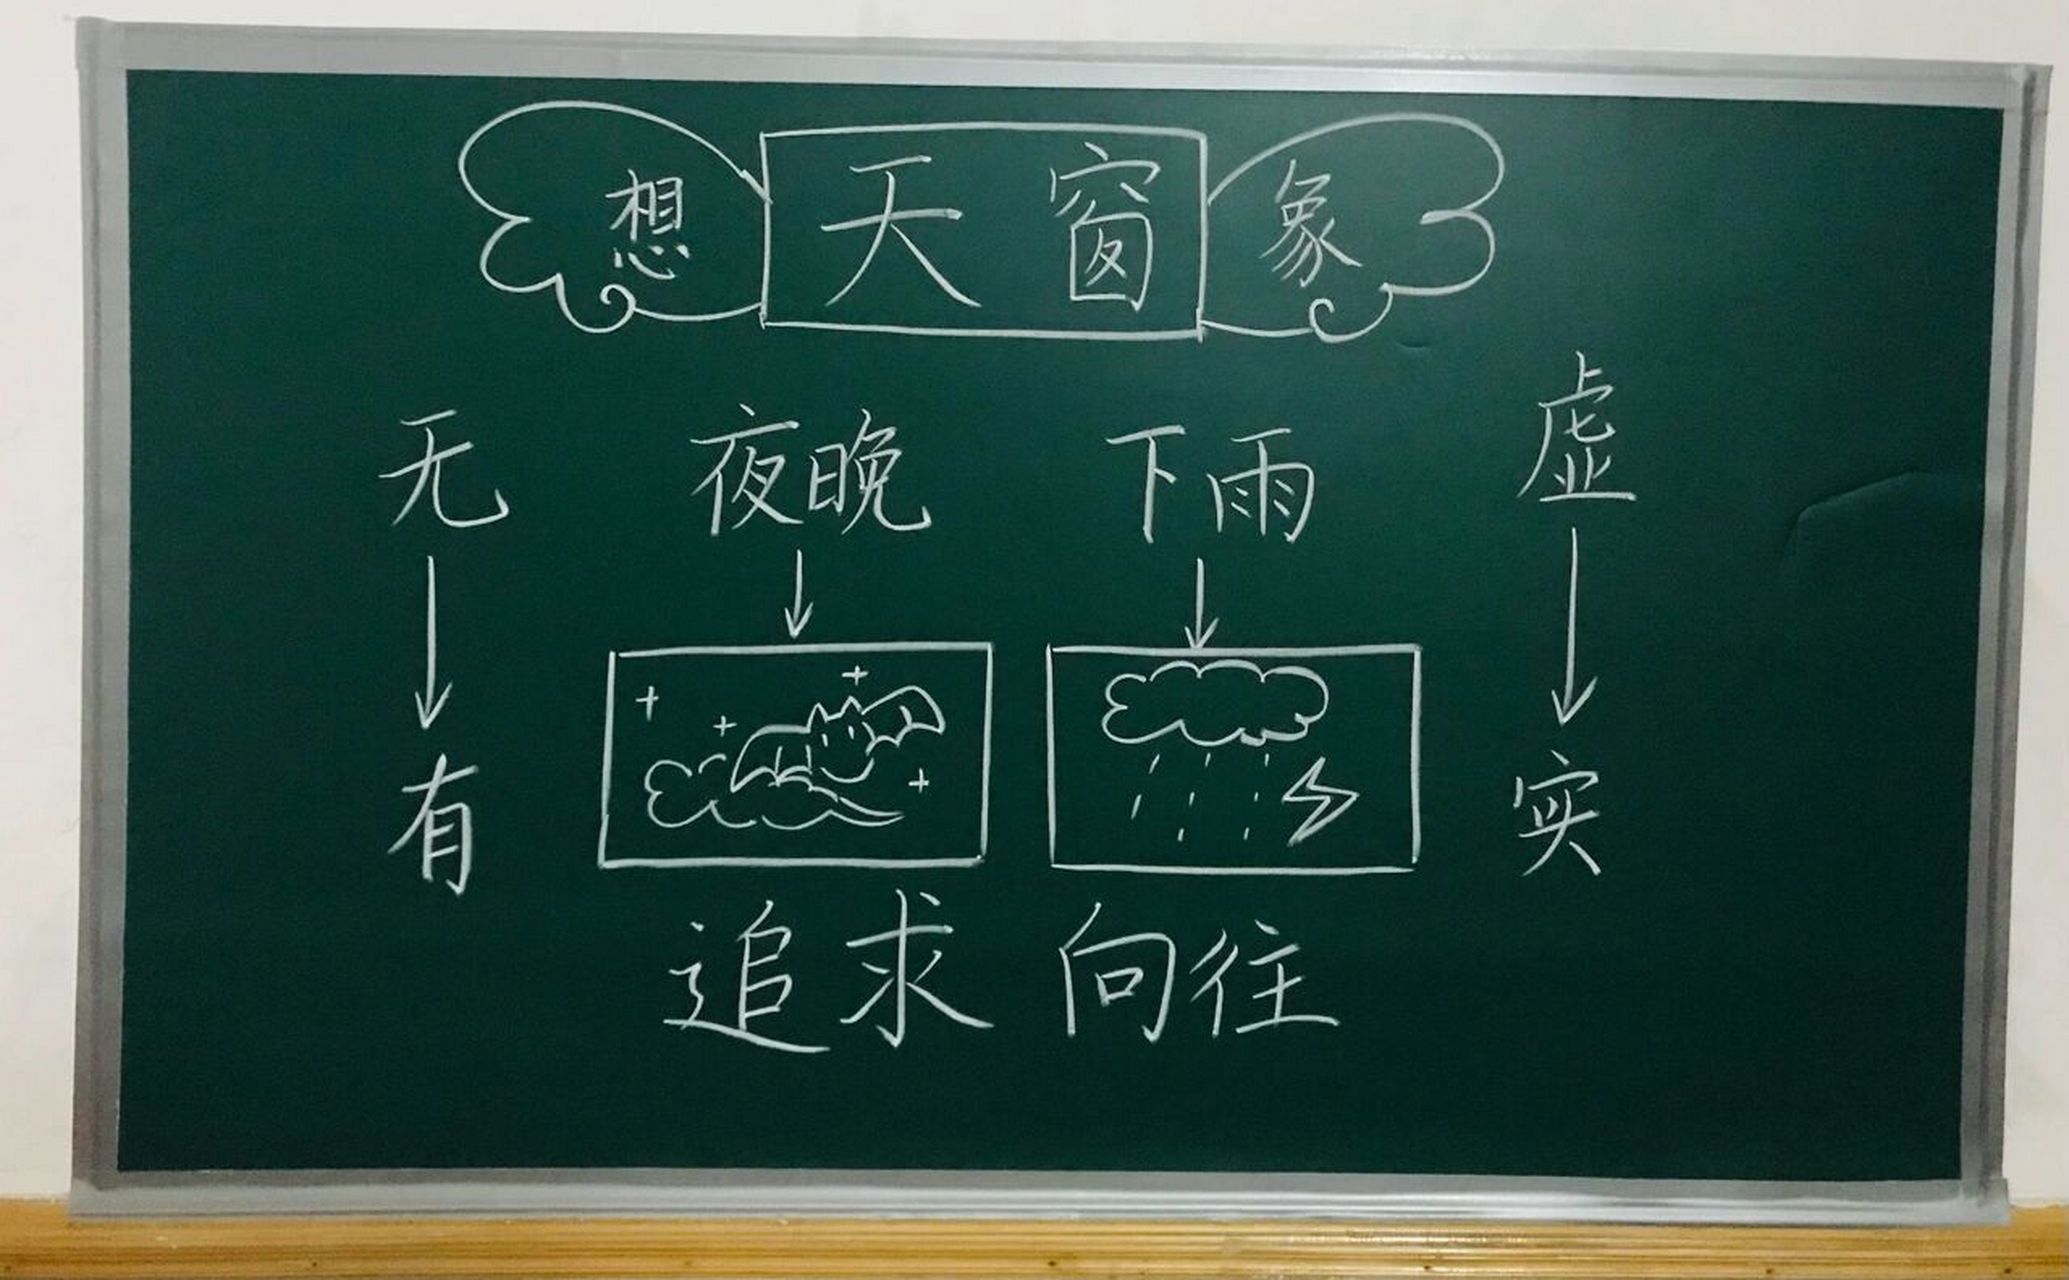 想 天窗 象
无 夜晚 下雨 虚
有 实
追求 向往